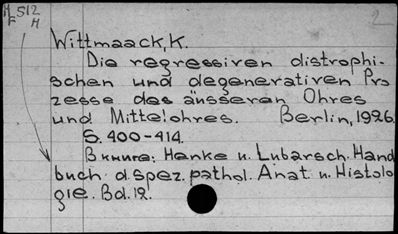 H 512
F H
2
Wittmaack, K.
Die regressiven distrophi-
schen und degenerativen Pro
zesse des äusseren Ohres
und Mittelohres. Berlin, 1926.
S. 400-414.
В книге: Henke u. Lubarsch. Hand
buch d. spez. pathol. Anat. u. Histolo
gie. Bd. 12.